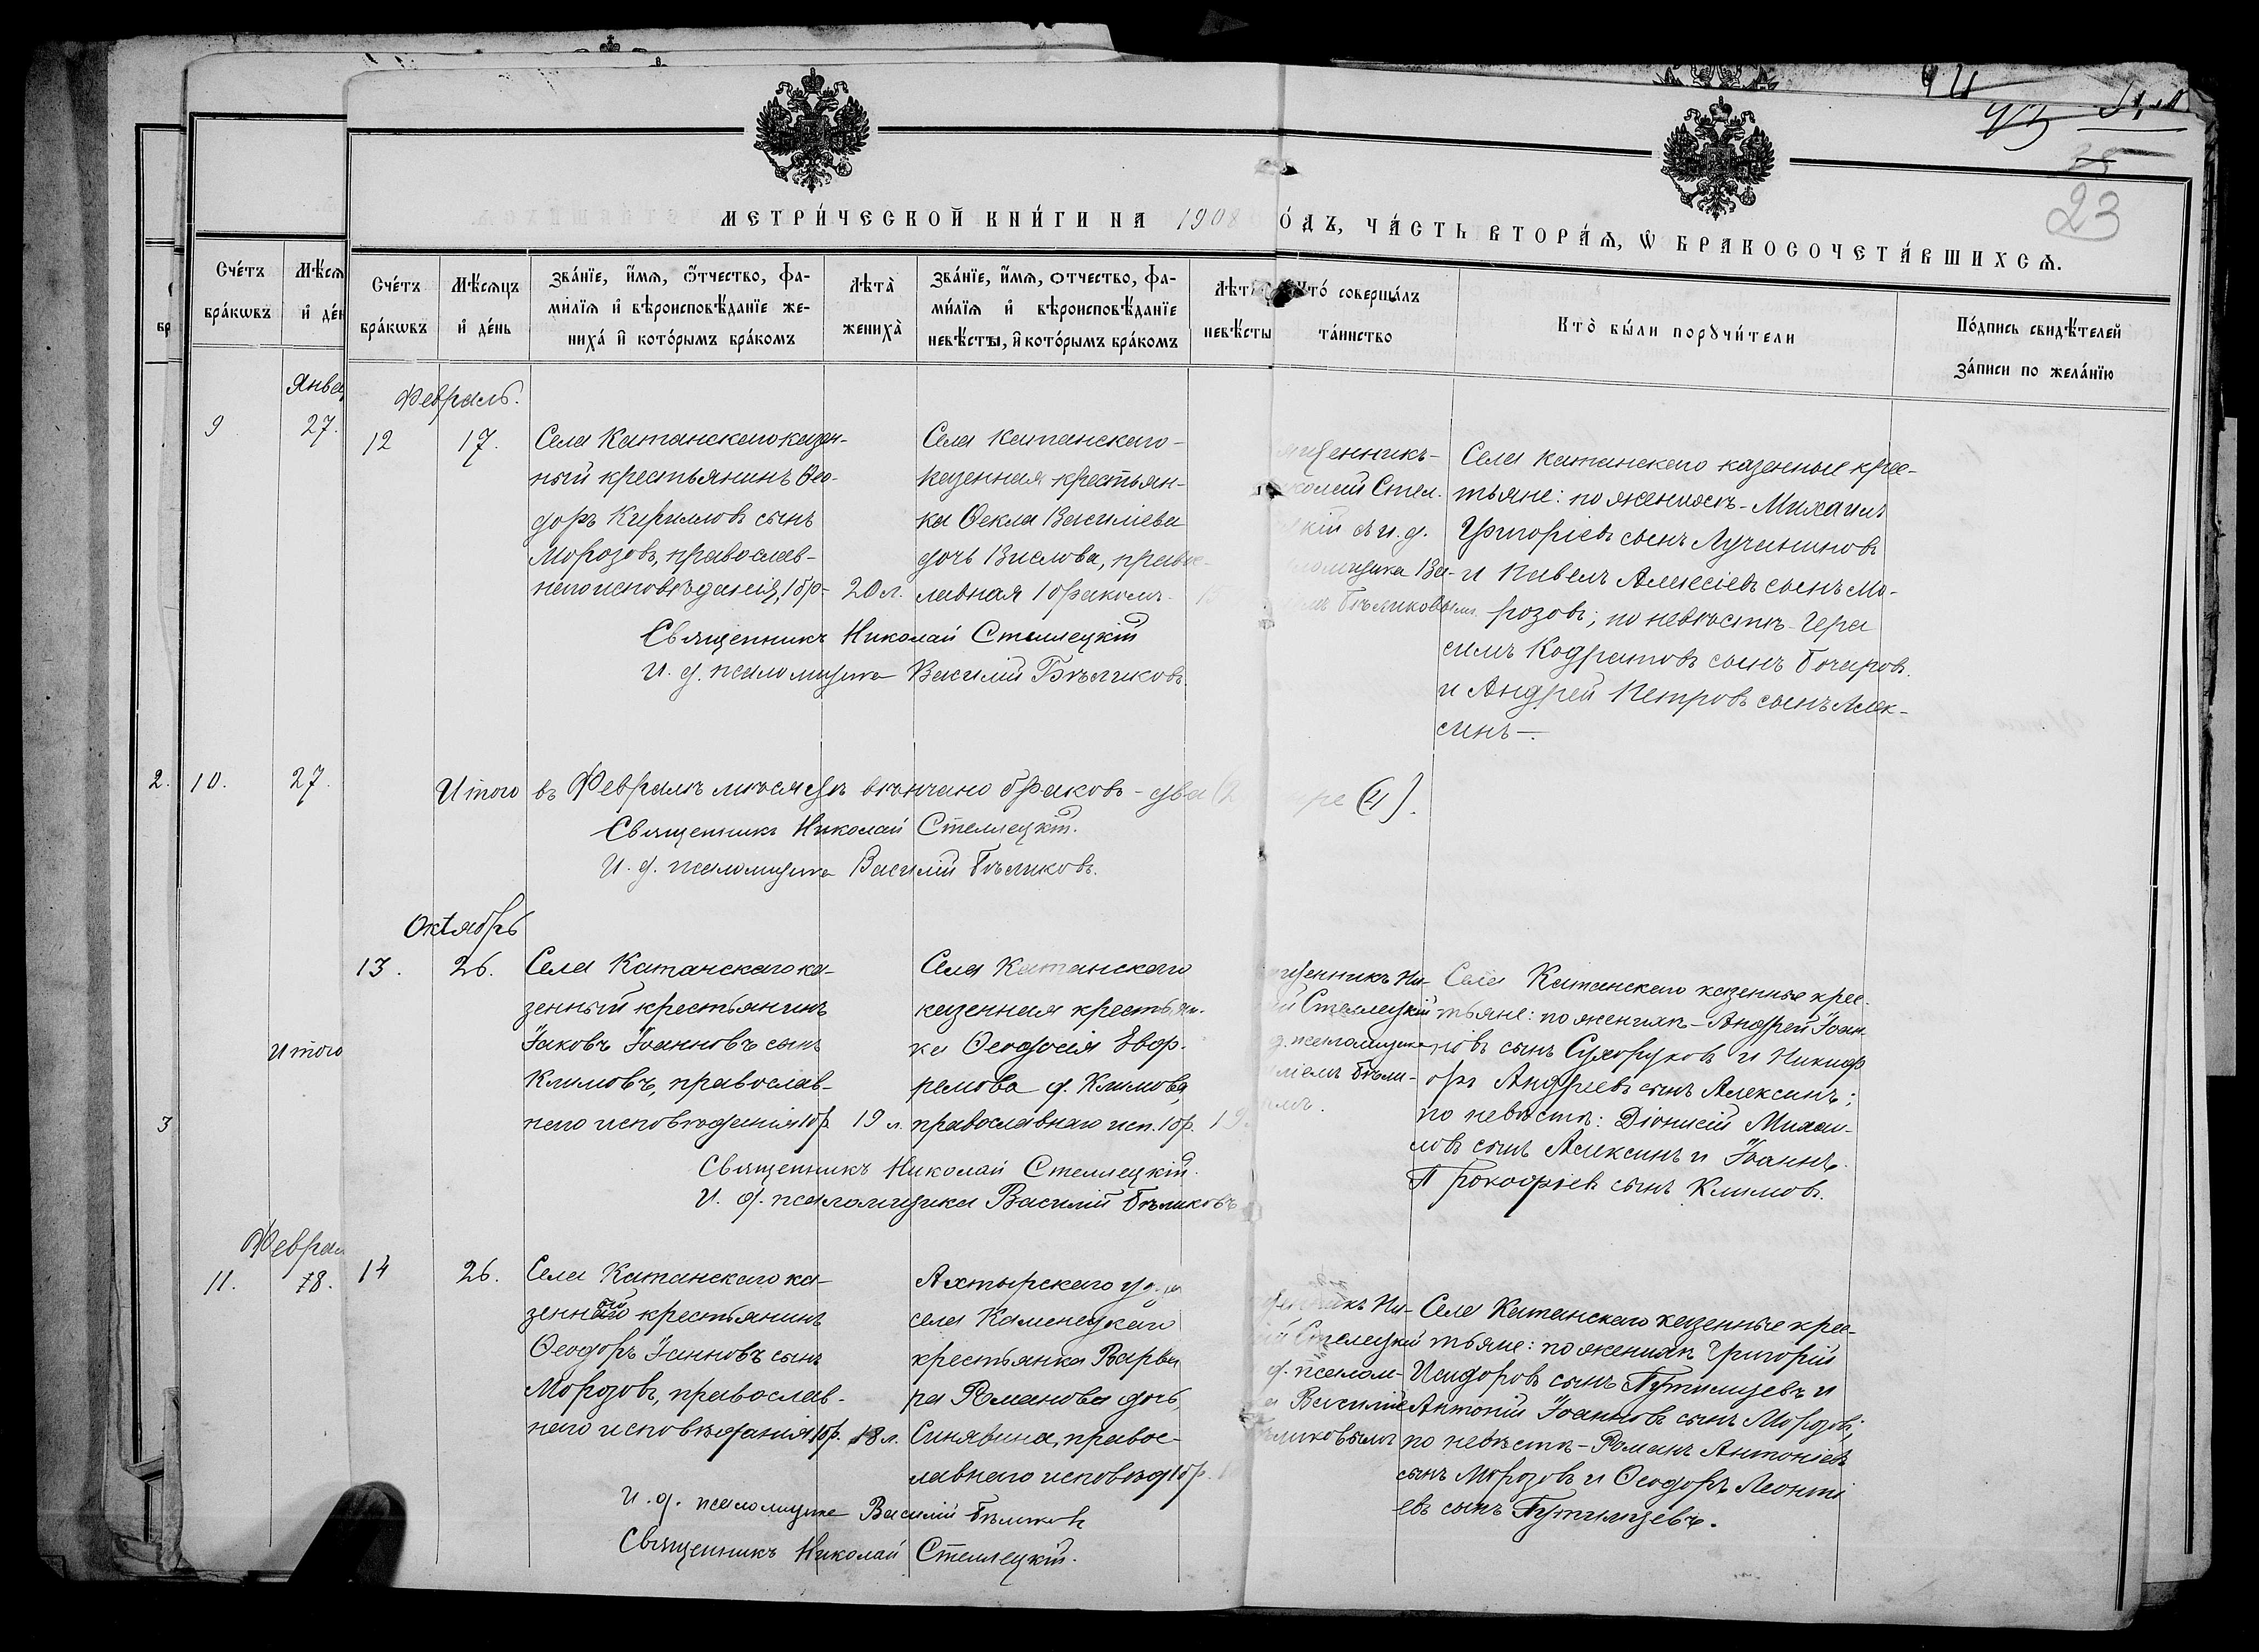 МЕТРИ́ЧЕСКОЙ КНИ́ГИ НА 1908
О́ДЪ, ЧА́СТЬ ВТОРА́Ѧ, Ѡ БРАКОСОЧЕТА́ВШИХСѦ.
23
Сче́тъ бра́кѡвъ
Мѣ́сѧцъ и҆ де́нь
Зва́нїе, и҆́мѧ, ѻ҆́тчество, фа-
ми́лїѧ и҆ вѣроисповѣ́данїе же-
ниха́ и҆ кото́рымъ бра́комъ
Лѣ́та̀ жениха̀
Зва́нїе, и҆́мѧ, ѻтчество, фа-
ми́лїѧ и҆ вѣроисповѣ́данїе
невѣ́сты, и҆ кото́рымъ бра́комъ
невѣ́сты
Кто́ соверша́лъ
та́инство
Кто̀ бы́ли порꙋчи́тели
По́дпись свидѣ́телей
за́писи по жела́нїю
Сче́тъ
бра́кѡвъ
9
27.
10.
27.
Итого
11.
18.
2.
3
Февраль.
12
17.
Села Катанскаго казен-
ный крестьянинъ Ѳео-
доръ Кирилловъ сынъ
Морозовъ, православ-
наго исповѣданія, 1 бр-
20 л.
Села Катанскаго-
казенная крестьян-
ка Ѳекла Василіева
дочь Вислова, правос-
лавная 1 бракомъ.
Села Катанскаго казенные крес-
тьяне: по женихѣ - Михаилъ
Григоріевъ сынъ Лучаниновъ
и Павелъ Алексіевъ сынъ Мо-
розовъ; по невѣстѣ - Гера
симъ Кодратовъ сынъ Бочаровъ
и Андрей Петровъ сынъ Алек-
синъ -.
Священникъ Николай Стеллецкій
И. д. псаломщика Василій Бѣликовъ.
Итого въ Февралѣ мѣсяцѣ вѣнчано браковъ - два
(4).
Священникъ Николай Стеллецкій.
И. д. псаломщика Василій Бѣликовъ.
Октябрь
13.
26.
Села Катанскаго ка-
зенный крестьянинъ
Іаковъ Іоанновъ сынъ
Климовъ, православ-
наго исповѣданія 1 бр
19 л.
Села Катанскаго
казенная крестьян-
ка Ѳеодосія Евф-
ремова д. Климова
православнаго исп. 1 бр.
19.
Села Катанскаго казенные крес-
тьяне: по женихѣ - Андрей Іоан
новъ сынъ Сухоруковъ и Никиф
оръ Андреевъ сынъ Алексинъ;
по невѣстѣ: Діонисій Михаи-
ловъ сынъ Алексинъ и Іоаннъ
Прокофіевъ сынъ Климовъ.
Священникъ Николай Стеллецкій.
И. д. псаломщика Василій Бѣликовъ
14
26.
Села Катанскаго ка-
зенный крестьянинъ
Ѳеодоръ Іанновъ сынъ
Морозовъ, православ-
наго исповѣданія 1 бр.
18 л.
Ахтырскаго
села Каменецкаго
крестьянка Варва
ра Романова дочь
Синявина, правос-
лавнаго исповѣд 1 бр.
Села Катанскаго казенные крес-
тьяне: по женихѣ Григорій
Исидоровъ сынъ Путилцевъ и
Антоній Іоанновъ сынъ Морозовъ;
по невѣстѣ - Романъ Антоніевъ
сынъ Морозовъ и Ѳеодоръ Леонті
евъ сынъ Путилцевъ.
И. д. псаломщика Василій Бѣликовъ
Священникъ Николай Стеллецкій.